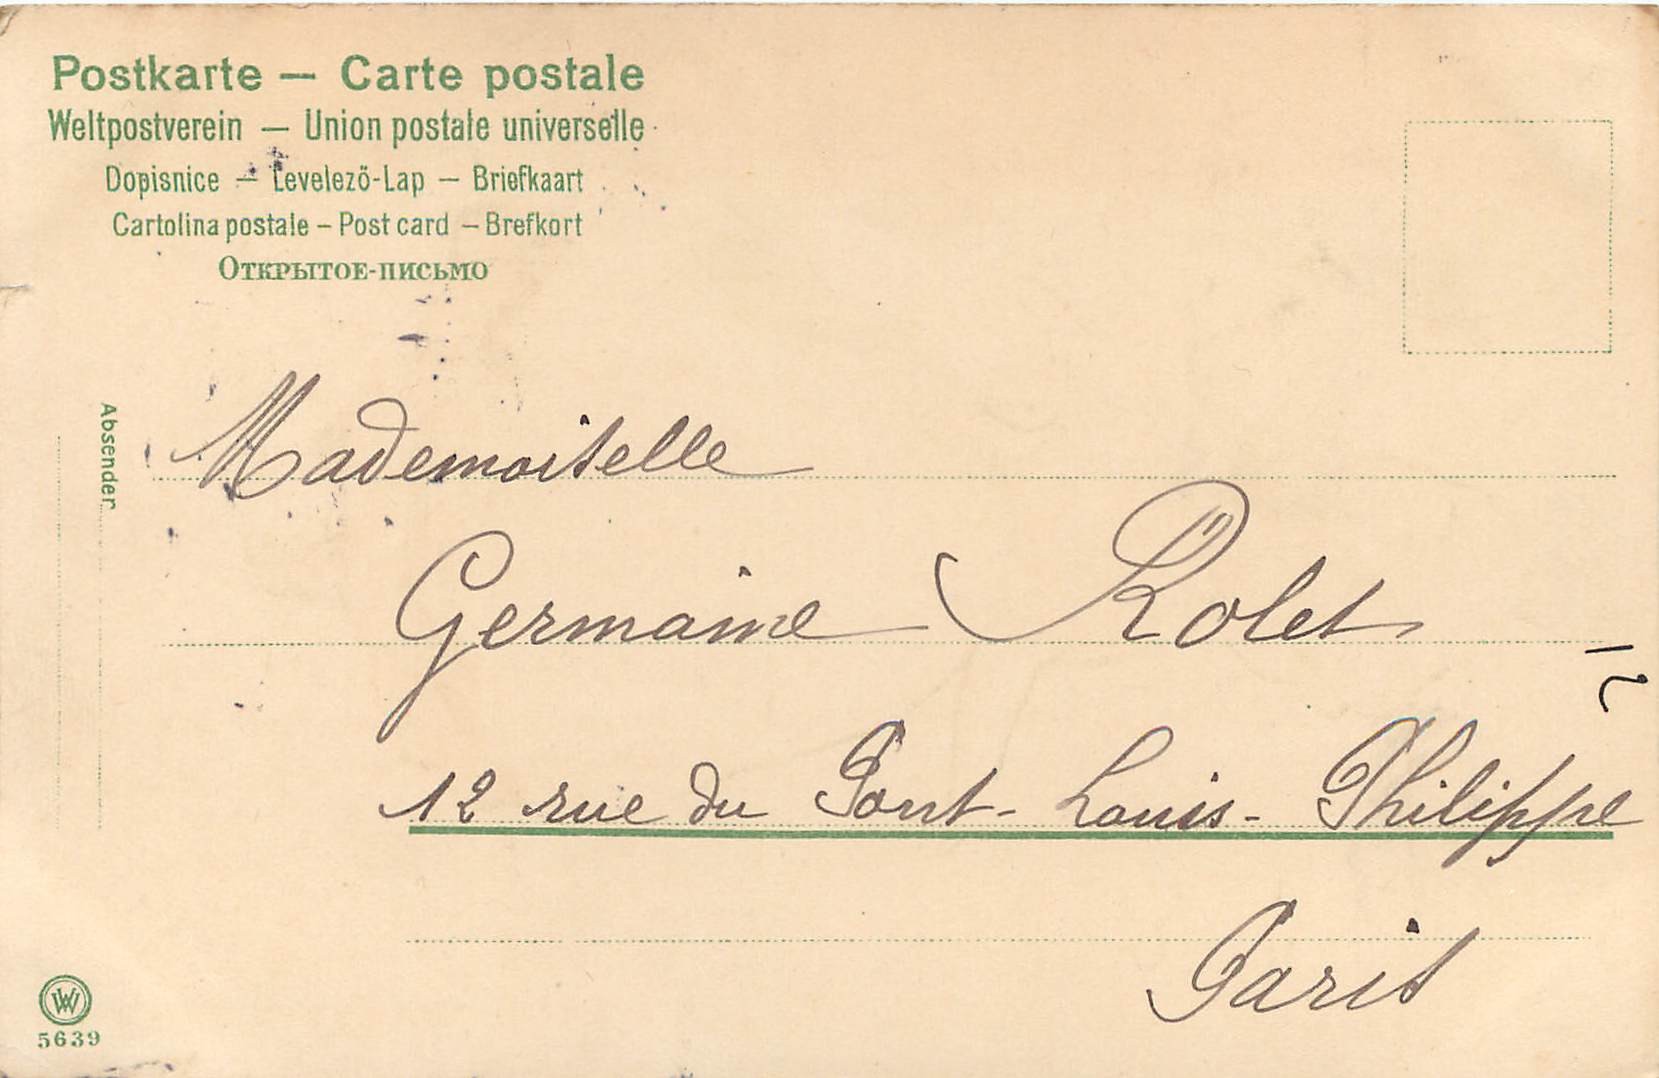 Postkarte — Carte postale
Weltpostverein — Union postale universelle
Dopisnice — Levelező-Lap — Briefkaart
Cartolina postale – Post card – Brefkort
Открытое-письмо
Absender
Mademoiselle
Germaine Rolet
12
12 rue du Pont-Louis-Philippe
Paris
W
5639